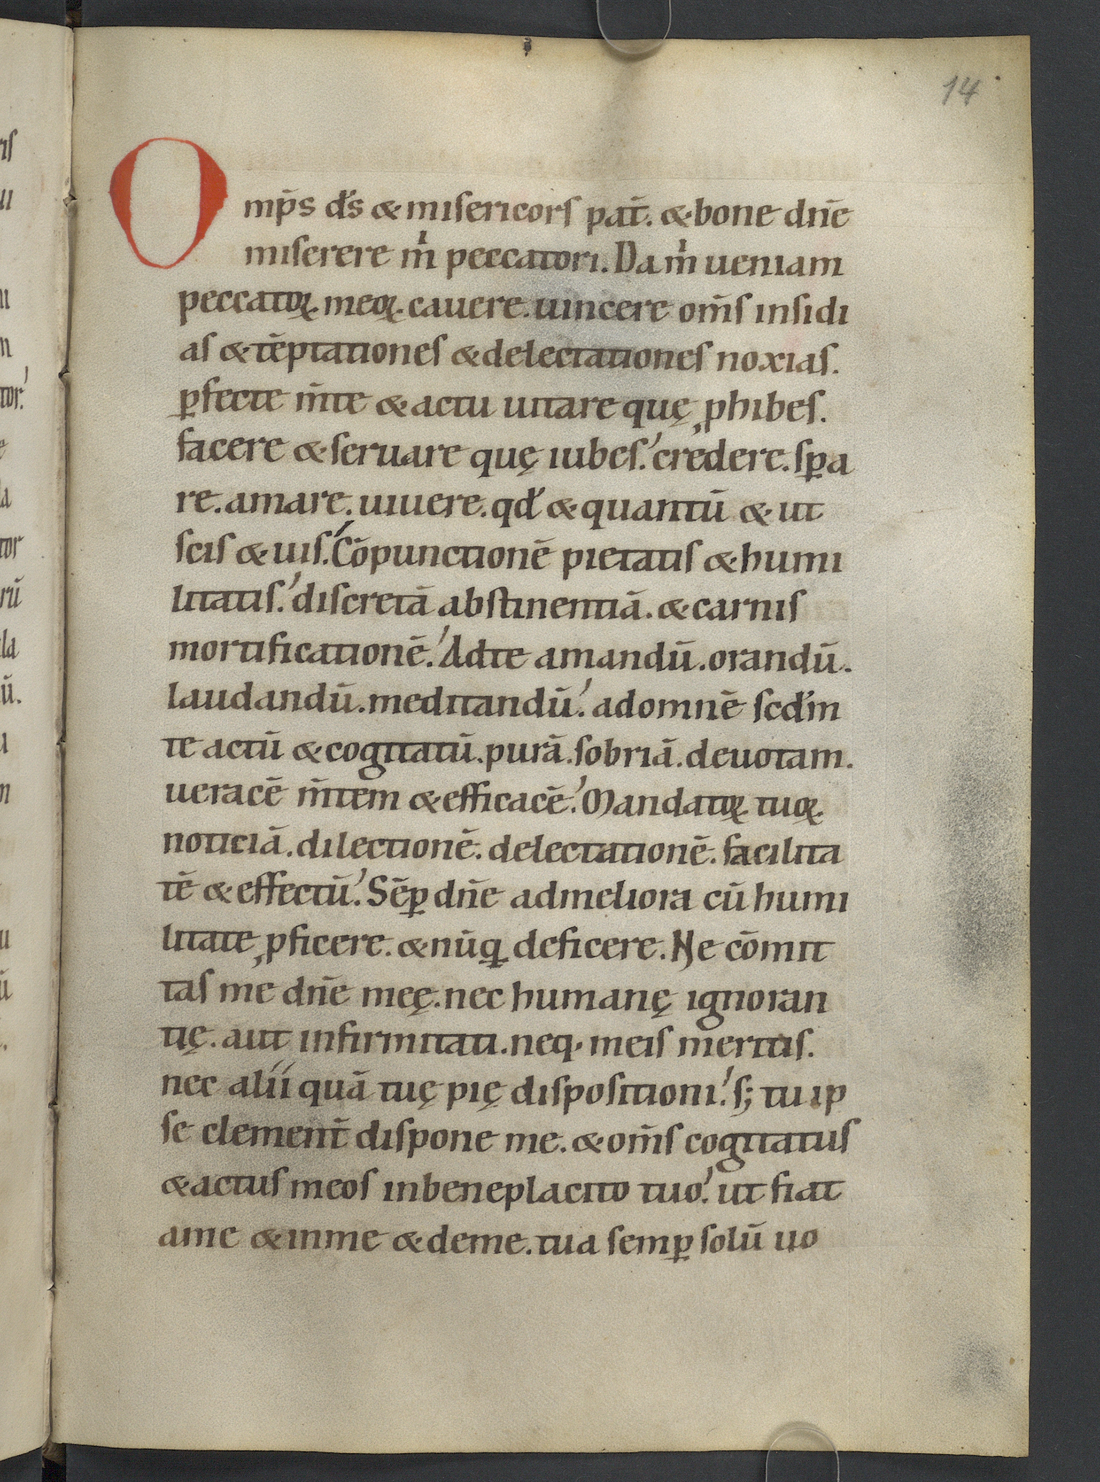 14
Omp̄s d̄s & miserico​rs pat̄. & bone dn̄e
miserere m̄i peccatori. Da m̄i ueniam
peccatoꝝ. meoꝝ. cauere. uincere om̄s insidi
as & tēptationes & delectationes noxias.
ꝑfecte m̄te & actu uitare quę ꝓhibes.
facere & seruare quę iubes. credere. sꝑa
re. amare. uiuere. qd̄ & quantū & ut
scis & uis. Cōpunctionē pietatis & humi
litatis. discretā abstinentiā. & carnis
mortificationē. Adte amandū. orandū.
laudandū. meditandū. adomnē scd̄m
te actū & cogitatū. purā. sobriā. deuotam.
ueracē m̄tem & efficacē. Mandatoꝝ tuoꝝ.
noticiā. dilectionē. delectationē. facilita
tē & effectū. Sēꝑ dn̄e admeliora cū humi
litate ꝓficere. & nūꝗ deficere. Ne cōmit
tas me dn̄e meę. nec humanę ignoran
tię. aut infirmitati. neq· meis meritis.
nec alii quā tuę pię dispositioni. s; tu ip
se clement̄ dispone me. & om̄s cogitatus
& actus meos inbeneplacito tuo. ut fiat
ame & inme & deme. tua semꝑ solū uo